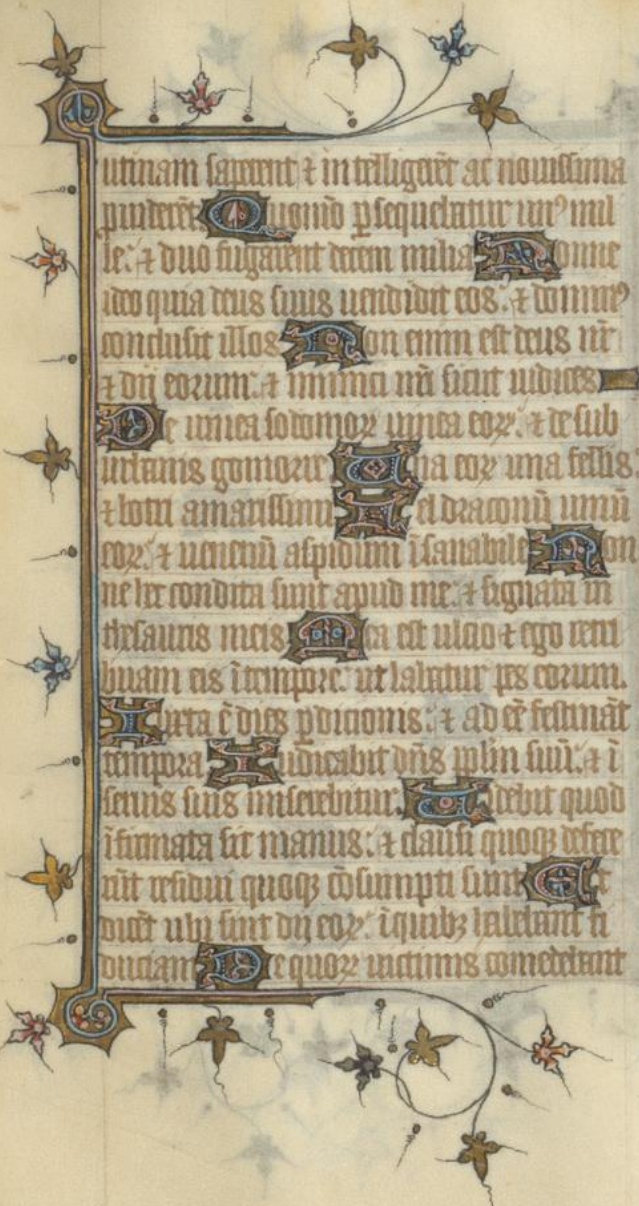 utinam saperent ⁊ intelligerēt ac nouissima
ꝓuiderēt Quomō ꝑsequebatur unꝰ mil
le: ⁊ duo fugarent decem milia Nonne
ideo quia deus suus uendidit eos: ⁊ dominꝰ
conclusit illos Non enim est deus nr̄
⁊ dii eorum: ⁊ inimici nr̄i sicut iudices
De uinea sodomoꝝ uinea eoꝝ: ⁊ de sub
urbanis gomorre Uua eoꝝ uua fellis
⁊ botri amarissimi Fel draconū uinū
eoꝝ: ⁊ uenenū aspidum īsanabile Non
ne hec condita sunt apud me: ⁊ signata in
thesauris meis Mea est ulcio ⁊ ego retri
buam eis ītempore: ut labatur pes eorum.
Iuxta ē dies ꝑdicionis: ⁊ ad eē festināt
tempora Iudicabit dn̄s pplm̄ suū: ⁊ ī
seruis suis miserebitur. Uidebit quod
īfirmata sit manus: ⁊ clausi quoqꝫ defece
rūt residui quoqꝫ cōsumpti sunt Et
dicēt ubi sunt dii eoꝝ: īquibꝫ habebant fi
duciam De quoꝝ uictimis comedebant